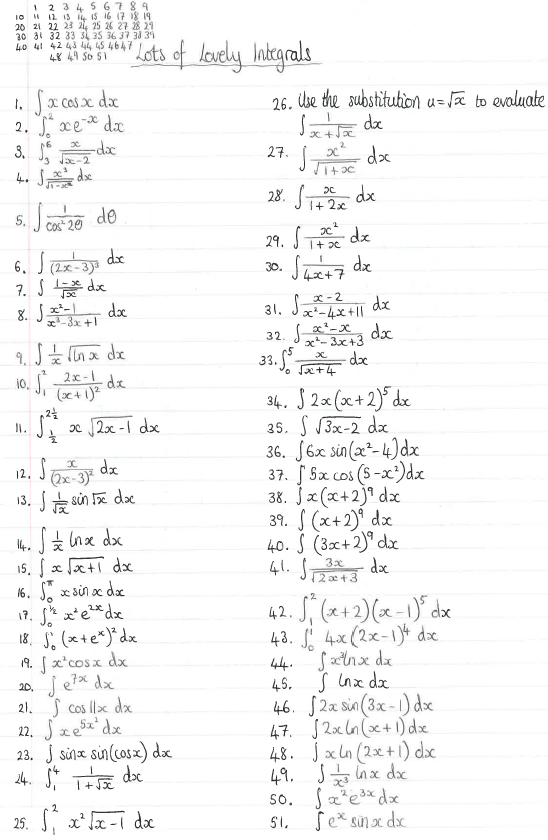 1 2 3 4 5 6 7 8 9
10 11 12 13 14 15 16 17 18 19
20 21 22 23 24 25 26 27 28 29
30 31 32 33 34 35 36 37 38 39
40 41 42 43 44 45 46 47
48 49 50 51
Lots of Lovely Integrals
1. ∫ x cos x dx
2. ∫₀² xe⁻ˣ dx
3. ∫₃⁶ x/√(x-2) dx
4. ∫ x³/√(1-x²) dx
5. ∫ 1/cos² 2θ dθ
6. ∫ 1/(2x-3)³ dx
7. ∫ (1-x)/√x dx
8. ∫ (x²-1)/(x³-3x+1) dx
9. ∫ 1/x √(ln x) dx
10. ∫₁² (2x-1)/(x+1)² dx
11. ∫_{1/2}^{2 1/2} x √(2x-1) dx
12. ∫ x/(2x-3)² dx
13. ∫ 1/√x sin √x dx
14. ∫ 1/x ln x dx
15. ∫ x √(x+1) dx
16. ∫₀^π x sin x dx
17. ∫₀^{1/2} x² e²ˣ dx
18. ∫₀¹ (x+eˣ)² dx
19. ∫ x² cos x dx
20. ∫ e⁷ˣ dx
21. ∫ cos 11x dx
22. ∫ x e^{5x²} dx
23. ∫ sin x sin(cos x) dx
24. ∫₁⁴ 1/(1+√x) dx
25. ∫₁² x² √(x-1) dx
26. Use the substitution u=√x to evaluate
∫ 1/(x+√x) dx
27. ∫ x²/√(1+x) dx
28. ∫ x/(1+2x) dx
29. ∫ x²/(1+x) dx
30. ∫ 1/(4x+7) dx
31. ∫ (x-2)/(x²-4x+11) dx
32. ∫ (x²-x)/(x²-3x+3) dx
33. ∫₀⁵ x/√(x+4) dx
34. ∫ 2x(x+2)⁵ dx
35. ∫ √(3x-2) dx
36. ∫ 6x sin(x²-4) dx
37. ∫ 5x cos(5-x²) dx
38. ∫ x(x+2)⁹ dx
39. ∫ (x+2)⁹ dx
40. ∫ (3x+2)⁹ dx
41. ∫ 3x/√(2x+3) dx
42. ∫₁² (x+2)(x-1)⁵ dx
43. ∫₀¹ 4x(2x-1)⁴ dx
44. ∫ x³ ln x dx
45. ∫ ln x dx
46. ∫ 2x sin(3x-1) dx
47. ∫ 2x ln(x+1) dx
48. ∫ x ln(2x+1) dx
49. ∫ 1/x³ ln x dx
50. ∫ x² e³ˣ dx
51. ∫ eˣ sin x dx